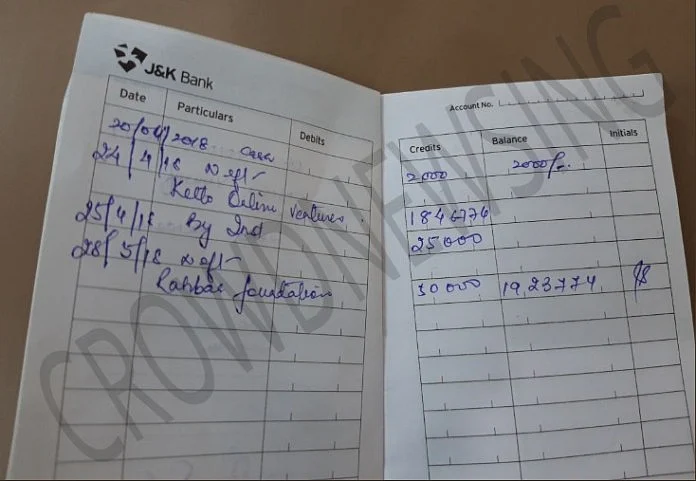 J&K Bank
Date Particulars Debits
20/04/2018 Cash
24/4/18 Neft
Ketto Online Ventures.
25/4/18 By
28/5/18 Neft
Rahbar foundation
Account No.
Credits Balance Initials
2000 2000/-
1846774
25000
50000 19,23774
CROWDNEWSING